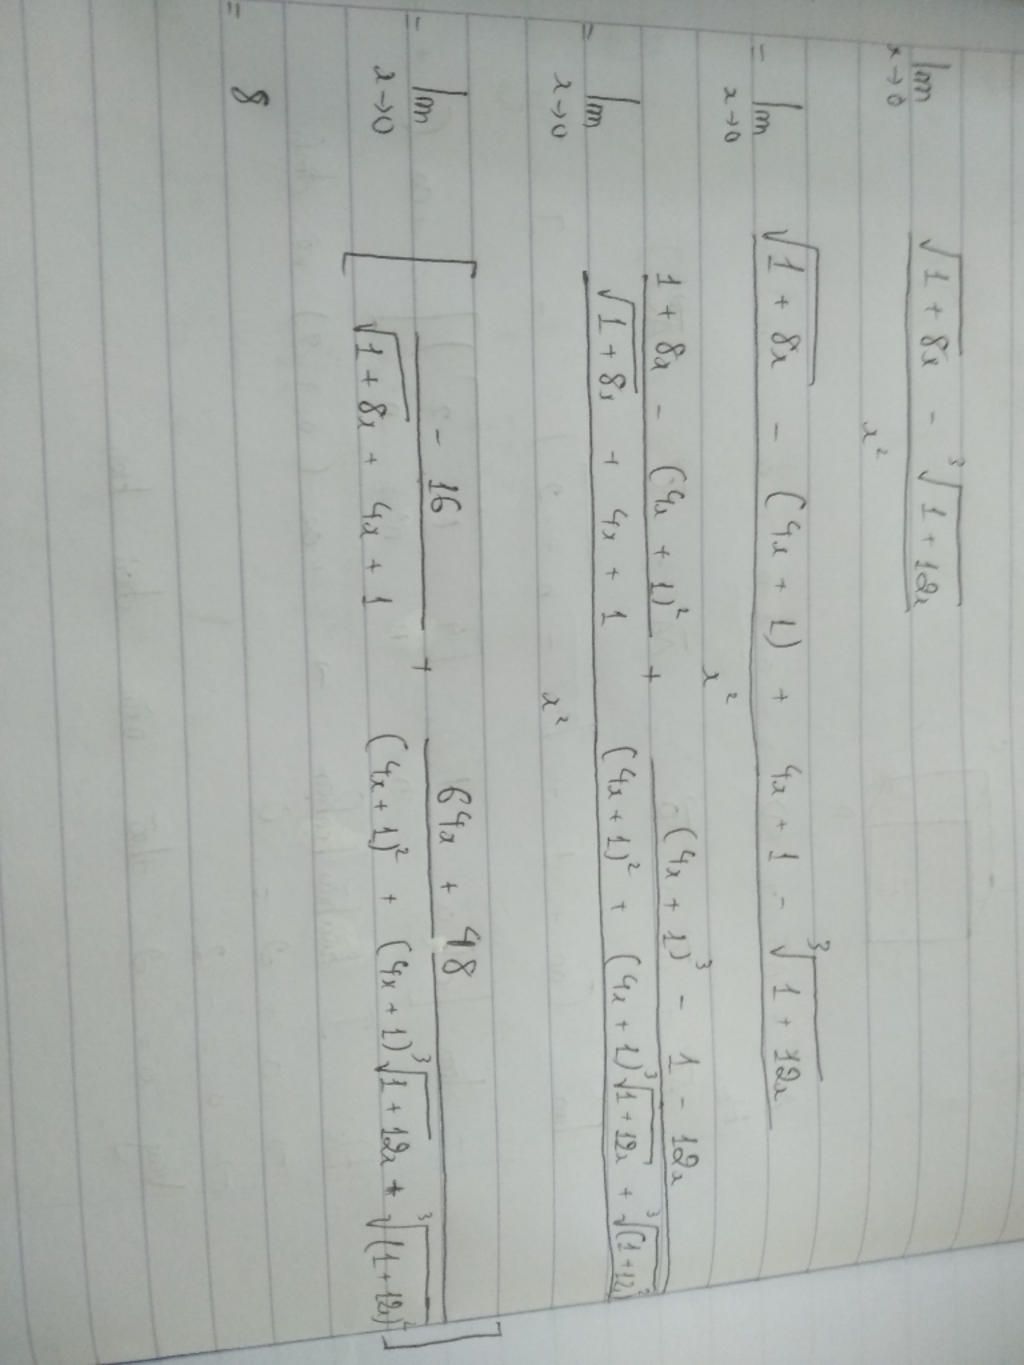 lim x→0 (√(1 + 8x) - ∛(1 + 12x)) / x²
= lim x→0 (√(1 + 8x) - (4x + 1) + 4x + 1 - ∛(1 + 12x)) / x²
= lim x→0 ((1 + 8x - (4x + 1)²) / (√(1 + 8x) + 4x + 1) + ((4x + 1)³ - 1 - 12x) / ((4x + 1)² + (4x + 1)∛(1 + 12x) + ∛((1 + 12x)²))) / x²
= lim x→0 [ -16 / (√(1 + 8x) + 4x + 1) + (64x + 48) / ((4x + 1)² + (4x + 1)∛(1 + 12x) + ∛((1 + 12x)²)) ]
= 8